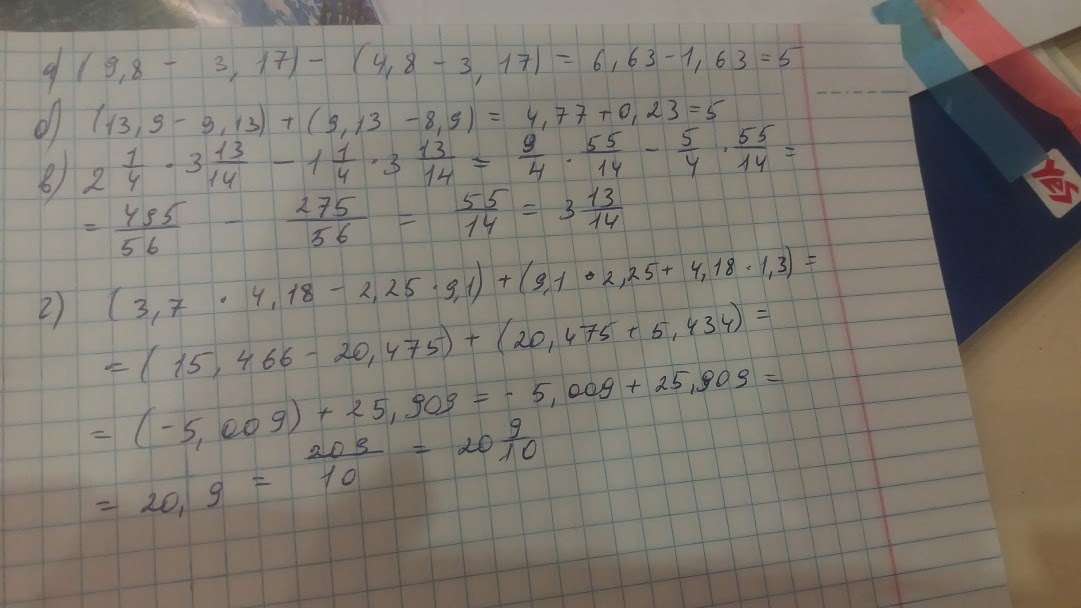 а) (9,8 - 3,17) - (4,8 - 3,17) = 6,63 - 1,63 = 5
б) (13,9 - 9,13) + (9,13 - 8,9) = 4,77 + 0,23 = 5
в) 2 1/4 · 3 13/14 - 1 1/4 · 3 13/14 = 9/4 · 55/14 - 5/4 · 55/14 =
= 495/56 - 275/56 = 55/14 = 3 13/14
г) (3,7 · 4,18 - 2,25 · 9,1) + (9,1 · 2,25 + 4,18 · 1,3) =
= (15,466 - 20,475) + (20,475 + 5,434) =
= (-5,009) + 25,909 = - 5,009 + 25,909 =
= 20,9 = 209/10 = 20 9/10
YES